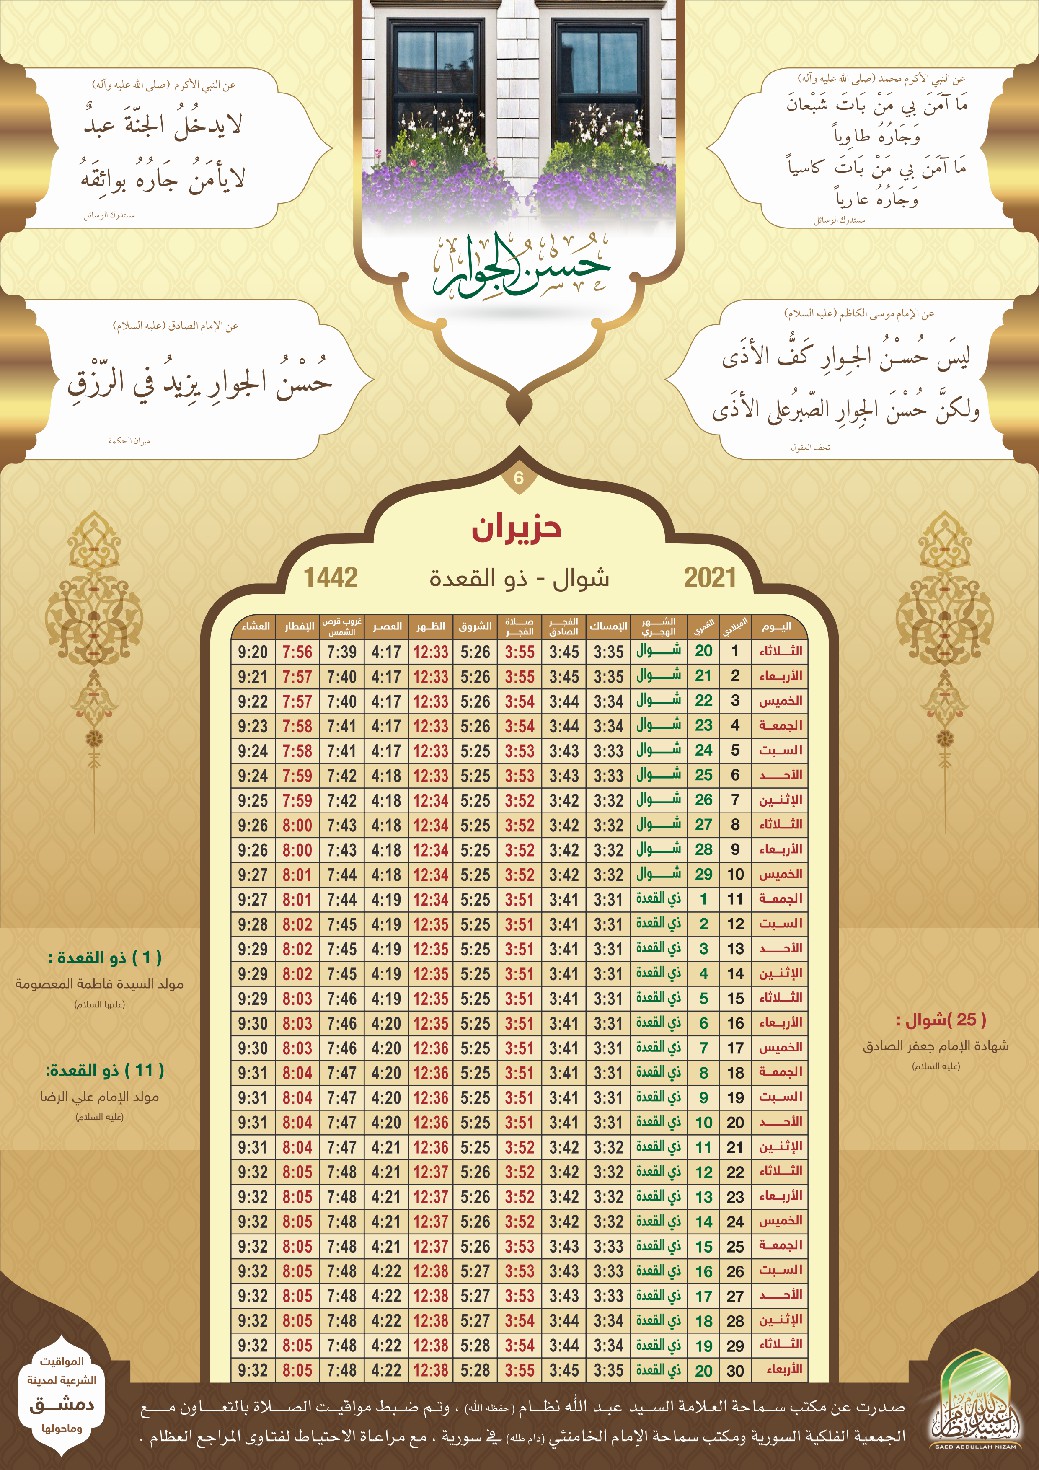 عن النبي الأكرم محمد (صلى الله عليه وآله)
مَا آمَنَ بي مَنْ بَاتَ شَبْعانَ
وَجَارُهُ طاوِياً
مَا آمَنَ بي مَنْ بَاتَ كاسياً
وَجَارُهُ عارياً
مستدرك الوسائل
عن النبي الأكرم (صلى الله عليه وآله)
لايدخُلُ الجنّةَ عبدٌ
لايأمَنُ جَارُهُ بوائِقَهُ
مستدرك الوسائل
حُسنُ الجوار
عن الإمام موسى الكاظم (عليه السلام)
ليسَ حُسْنُ الجِوارِ كَفُّ الأذَى
ولكنَّ حُسْنَ الجِوارِ الصّبرُ على الأذَى
تحف العقول
عن الامام الصادق (عليه السلام)
حُسْنُ الجوارِ يزيدُ في الرّزْقِ
ميزان الحكمة
6
حزيران
2021 شوال - ذو القعدة 1442
اليوم الميلادي القمري الشهر الهجري الإمساك الفجر الصادق صلاة الفجر الشروق الظهر العصر غروب قرص الشمس الإفطار العشاء
الثلاثاء 1 20 شوال 3:35 3:45 3:55 5:26 12:33 4:17 7:39 7:56 9:20
الأربعاء 2 21 شوال 3:35 3:45 3:55 5:26 12:33 4:17 7:40 7:57 9:21
الخميس 3 22 شوال 3:34 3:44 3:54 5:26 12:33 4:17 7:40 7:57 9:22
الجمعة 4 23 شوال 3:34 3:44 3:54 5:26 12:33 4:17 7:41 7:58 9:23
السبت 5 24 شوال 3:33 3:43 3:53 5:25 12:33 4:17 7:41 7:58 9:24
الأحد 6 25 شوال 3:33 3:43 3:53 5:25 12:33 4:18 7:42 7:59 9:24
الإثنين 7 26 شوال 3:32 3:42 3:52 5:25 12:34 4:18 7:42 7:59 9:25
الثلاثاء 8 27 شوال 3:32 3:42 3:52 5:25 12:34 4:18 7:43 8:00 9:26
الأربعاء 9 28 شوال 3:32 3:42 3:52 5:25 12:34 4:18 7:43 8:00 9:26
الخميس 10 29 شوال 3:32 3:42 3:52 5:25 12:34 4:18 7:44 8:01 9:27
الجمعة 11 1 ذي القعدة 3:31 3:41 3:51 5:25 12:34 4:19 7:44 8:01 9:27
السبت 12 2 ذي القعدة 3:31 3:41 3:51 5:25 12:35 4:19 7:45 8:02 9:28
الأحد 13 3 ذي القعدة 3:31 3:41 3:51 5:25 12:35 4:19 7:45 8:02 9:29
الإثنين 14 4 ذي القعدة 3:31 3:41 3:51 5:25 12:35 4:19 7:45 8:02 9:29
الثلاثاء 15 5 ذي القعدة 3:31 3:41 3:51 5:25 12:35 4:19 7:46 8:03 9:29
الأربعاء 16 6 ذي القعدة 3:31 3:41 3:51 5:25 12:35 4:20 7:46 8:03 9:30
الخميس 17 7 ذي القعدة 3:31 3:41 3:51 5:25 12:36 4:20 7:46 8:03 9:30
الجمعة 18 8 ذي القعدة 3:31 3:41 3:51 5:25 12:36 4:20 7:47 8:04 9:31
السبت 19 9 ذي القعدة 3:31 3:41 3:51 5:25 12:36 4:20 7:47 8:04 9:31
الأحد 20 10 ذي القعدة 3:31 3:41 3:51 5:25 12:36 4:20 7:47 8:04 9:31
الإثنين 21 11 ذي القعدة 3:32 3:42 3:52 5:25 12:36 4:21 7:47 8:04 9:31
الثلاثاء 22 12 ذي القعدة 3:32 3:42 3:52 5:26 12:37 4:21 7:48 8:05 9:32
الأربعاء 23 13 ذي القعدة 3:32 3:42 3:52 5:26 12:37 4:21 7:48 8:05 9:32
الخميس 24 14 ذي القعدة 3:32 3:42 3:52 5:26 12:37 4:21 7:48 8:05 9:32
الجمعة 25 15 ذي القعدة 3:33 3:43 3:53 5:26 12:37 4:21 7:48 8:05 9:32
السبت 26 16 ذي القعدة 3:33 3:43 3:53 5:27 12:38 4:22 7:48 8:05 9:32
الأحد 27 17 ذي القعدة 3:33 3:43 3:53 5:27 12:38 4:22 7:48 8:05 9:32
الإثنين 28 18 ذي القعدة 3:34 3:44 3:54 5:27 12:38 4:22 7:48 8:05 9:32
الثلاثاء 29 19 ذي القعدة 3:34 3:44 3:54 5:28 12:38 4:22 7:48 8:05 9:32
الأربعاء 30 20 ذي القعدة 3:35 3:45 3:55 5:28 12:38 4:22 7:48 8:05 9:32
( 25 )شوال :
شهادة الإمام جعفر الصادق
(عليه السلام)
( 1 ) ذو القعدة :
مولد السيدة فاطمة المعصومة
(عليها السلام)
( 11 ) ذو القعدة:
مولد الإمام علي الرضا
(عليه السلام)
صدرت عن مكتب سماحة العلامة السيد عبد الله نظام (حفظه الله) ، وتم ضبط مواقيت الصلاة بالتعاون مع
الجمعية الفلكية السورية ومكتب سماحة الإمام الخامنئي (دام ظله) في سورية ، مع مراعاة الاحتياط لفتاوى المراجع العظام .
المواقيت
الشرعية لمدينة
دمشق
وماحولها
السيد عبد الله نظام
SAED ABDULLAH NIZAM